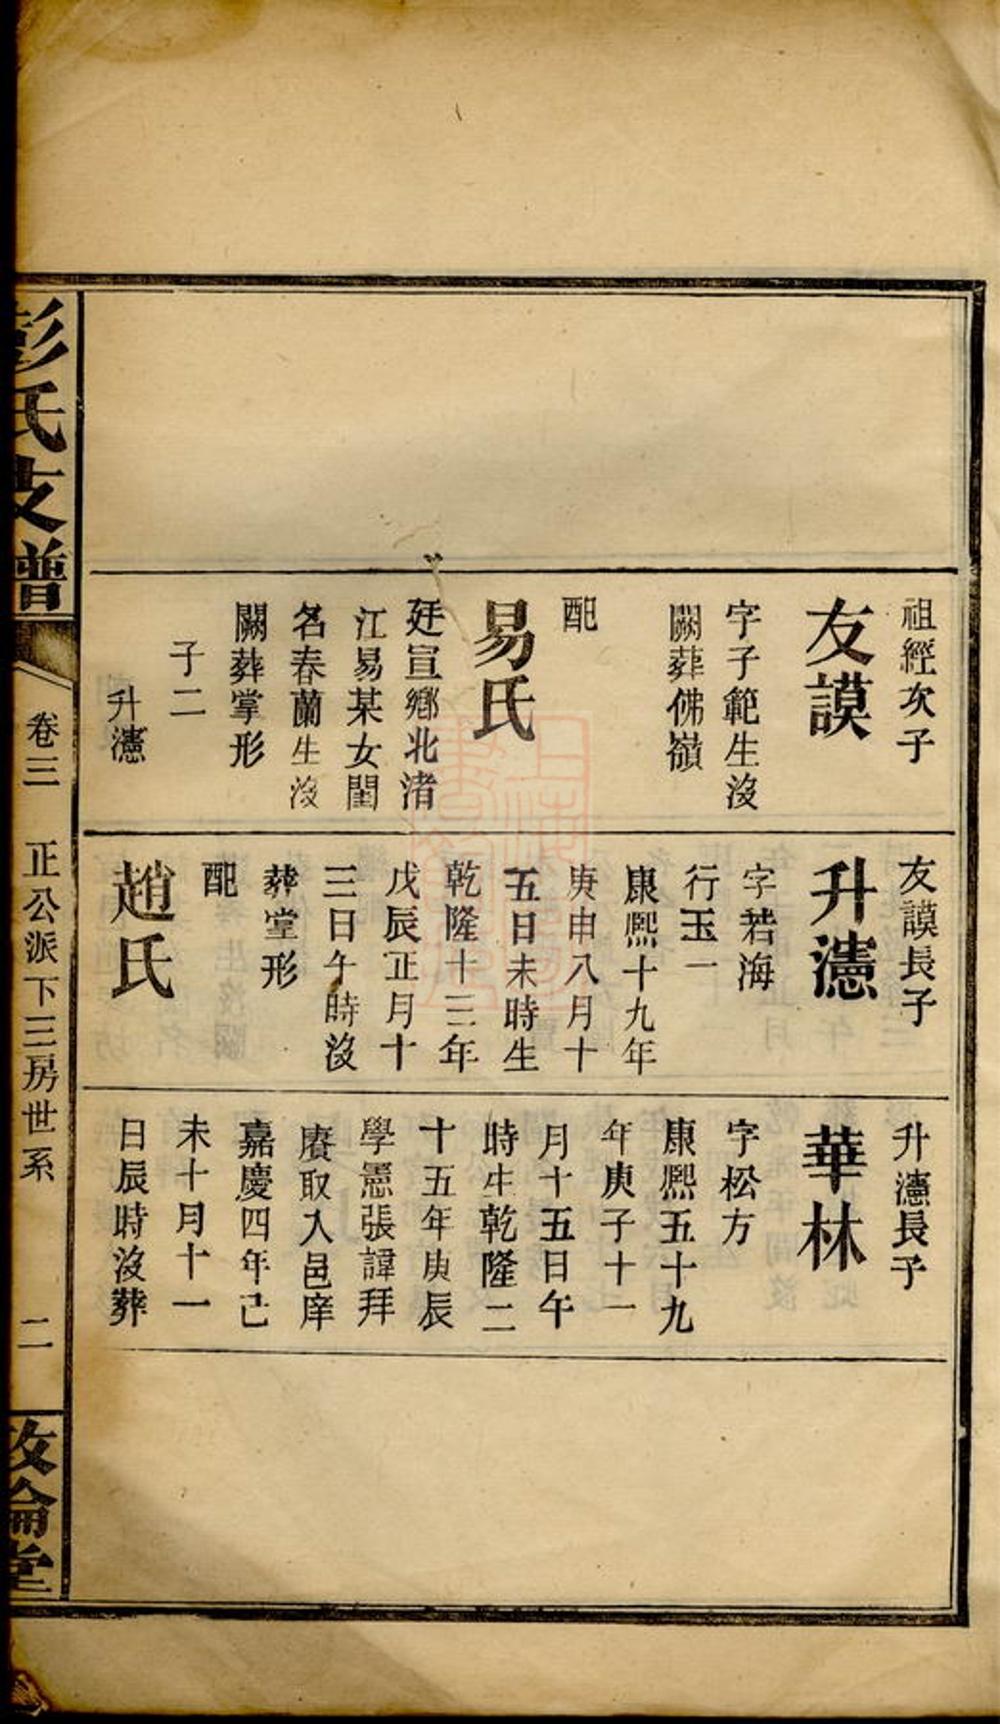 祖經次子
友謨
字子範生沒
闕葬佛嶺
配
易氏
廷宣鄉北渚
江易某女閨
名春蘭生沒
闕葬掌形
子二
升瀗
友謨長子
升瀗
字若海
行玉一
康熙十九年
庚申八月十
五日未時生
乾隆十三年
戊辰正月十
三日午時沒
葬堂形
配
趙氏
升瀗長子
華林
字松方
康熙五十九
年庚子十一
月十五日午
時生乾隆二
十五年庚辰
學憲張諱拜
賡取入邑庠
嘉慶四年己
未十月十一
日辰時沒葬
彭氏支譜
卷三
正公派下三房世系
二
敦倫堂